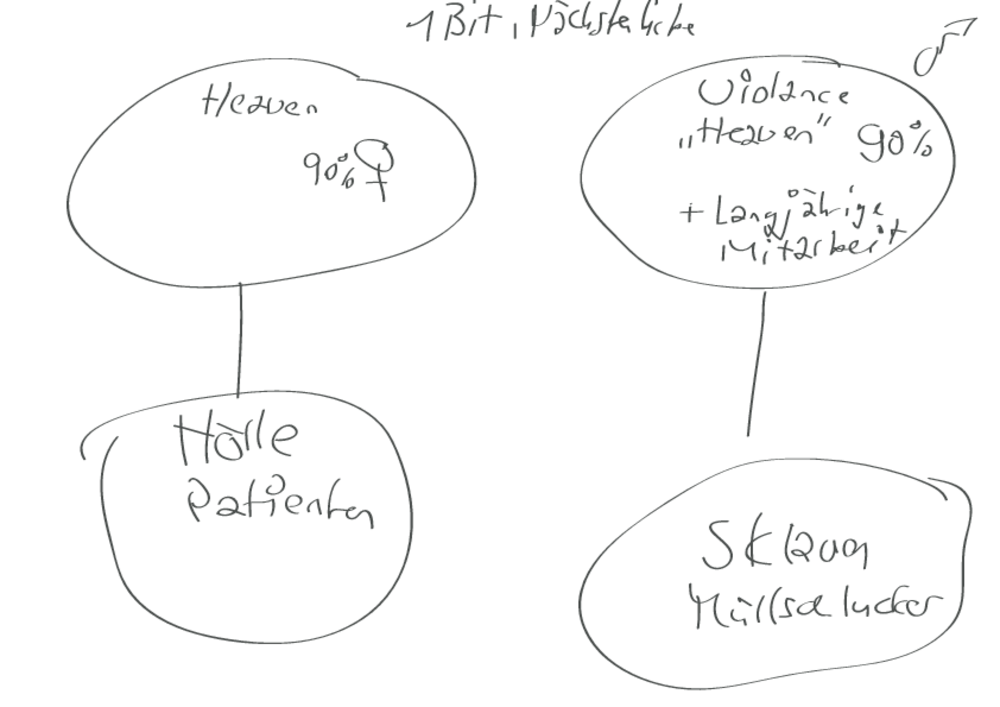 1 Bit, Nächstenliebe
Heaven
90% ♀
♂
Violance
„Heaven" 90%
+ Langjährige
Mitarbeit
Hölle
Patienten
Sklaven
Müllschlucker